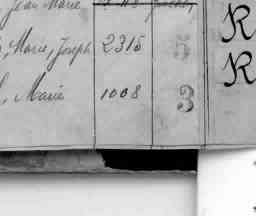 Jean Marie,
R
Marie, Joseph 2315 5
R
Marie 1008 3